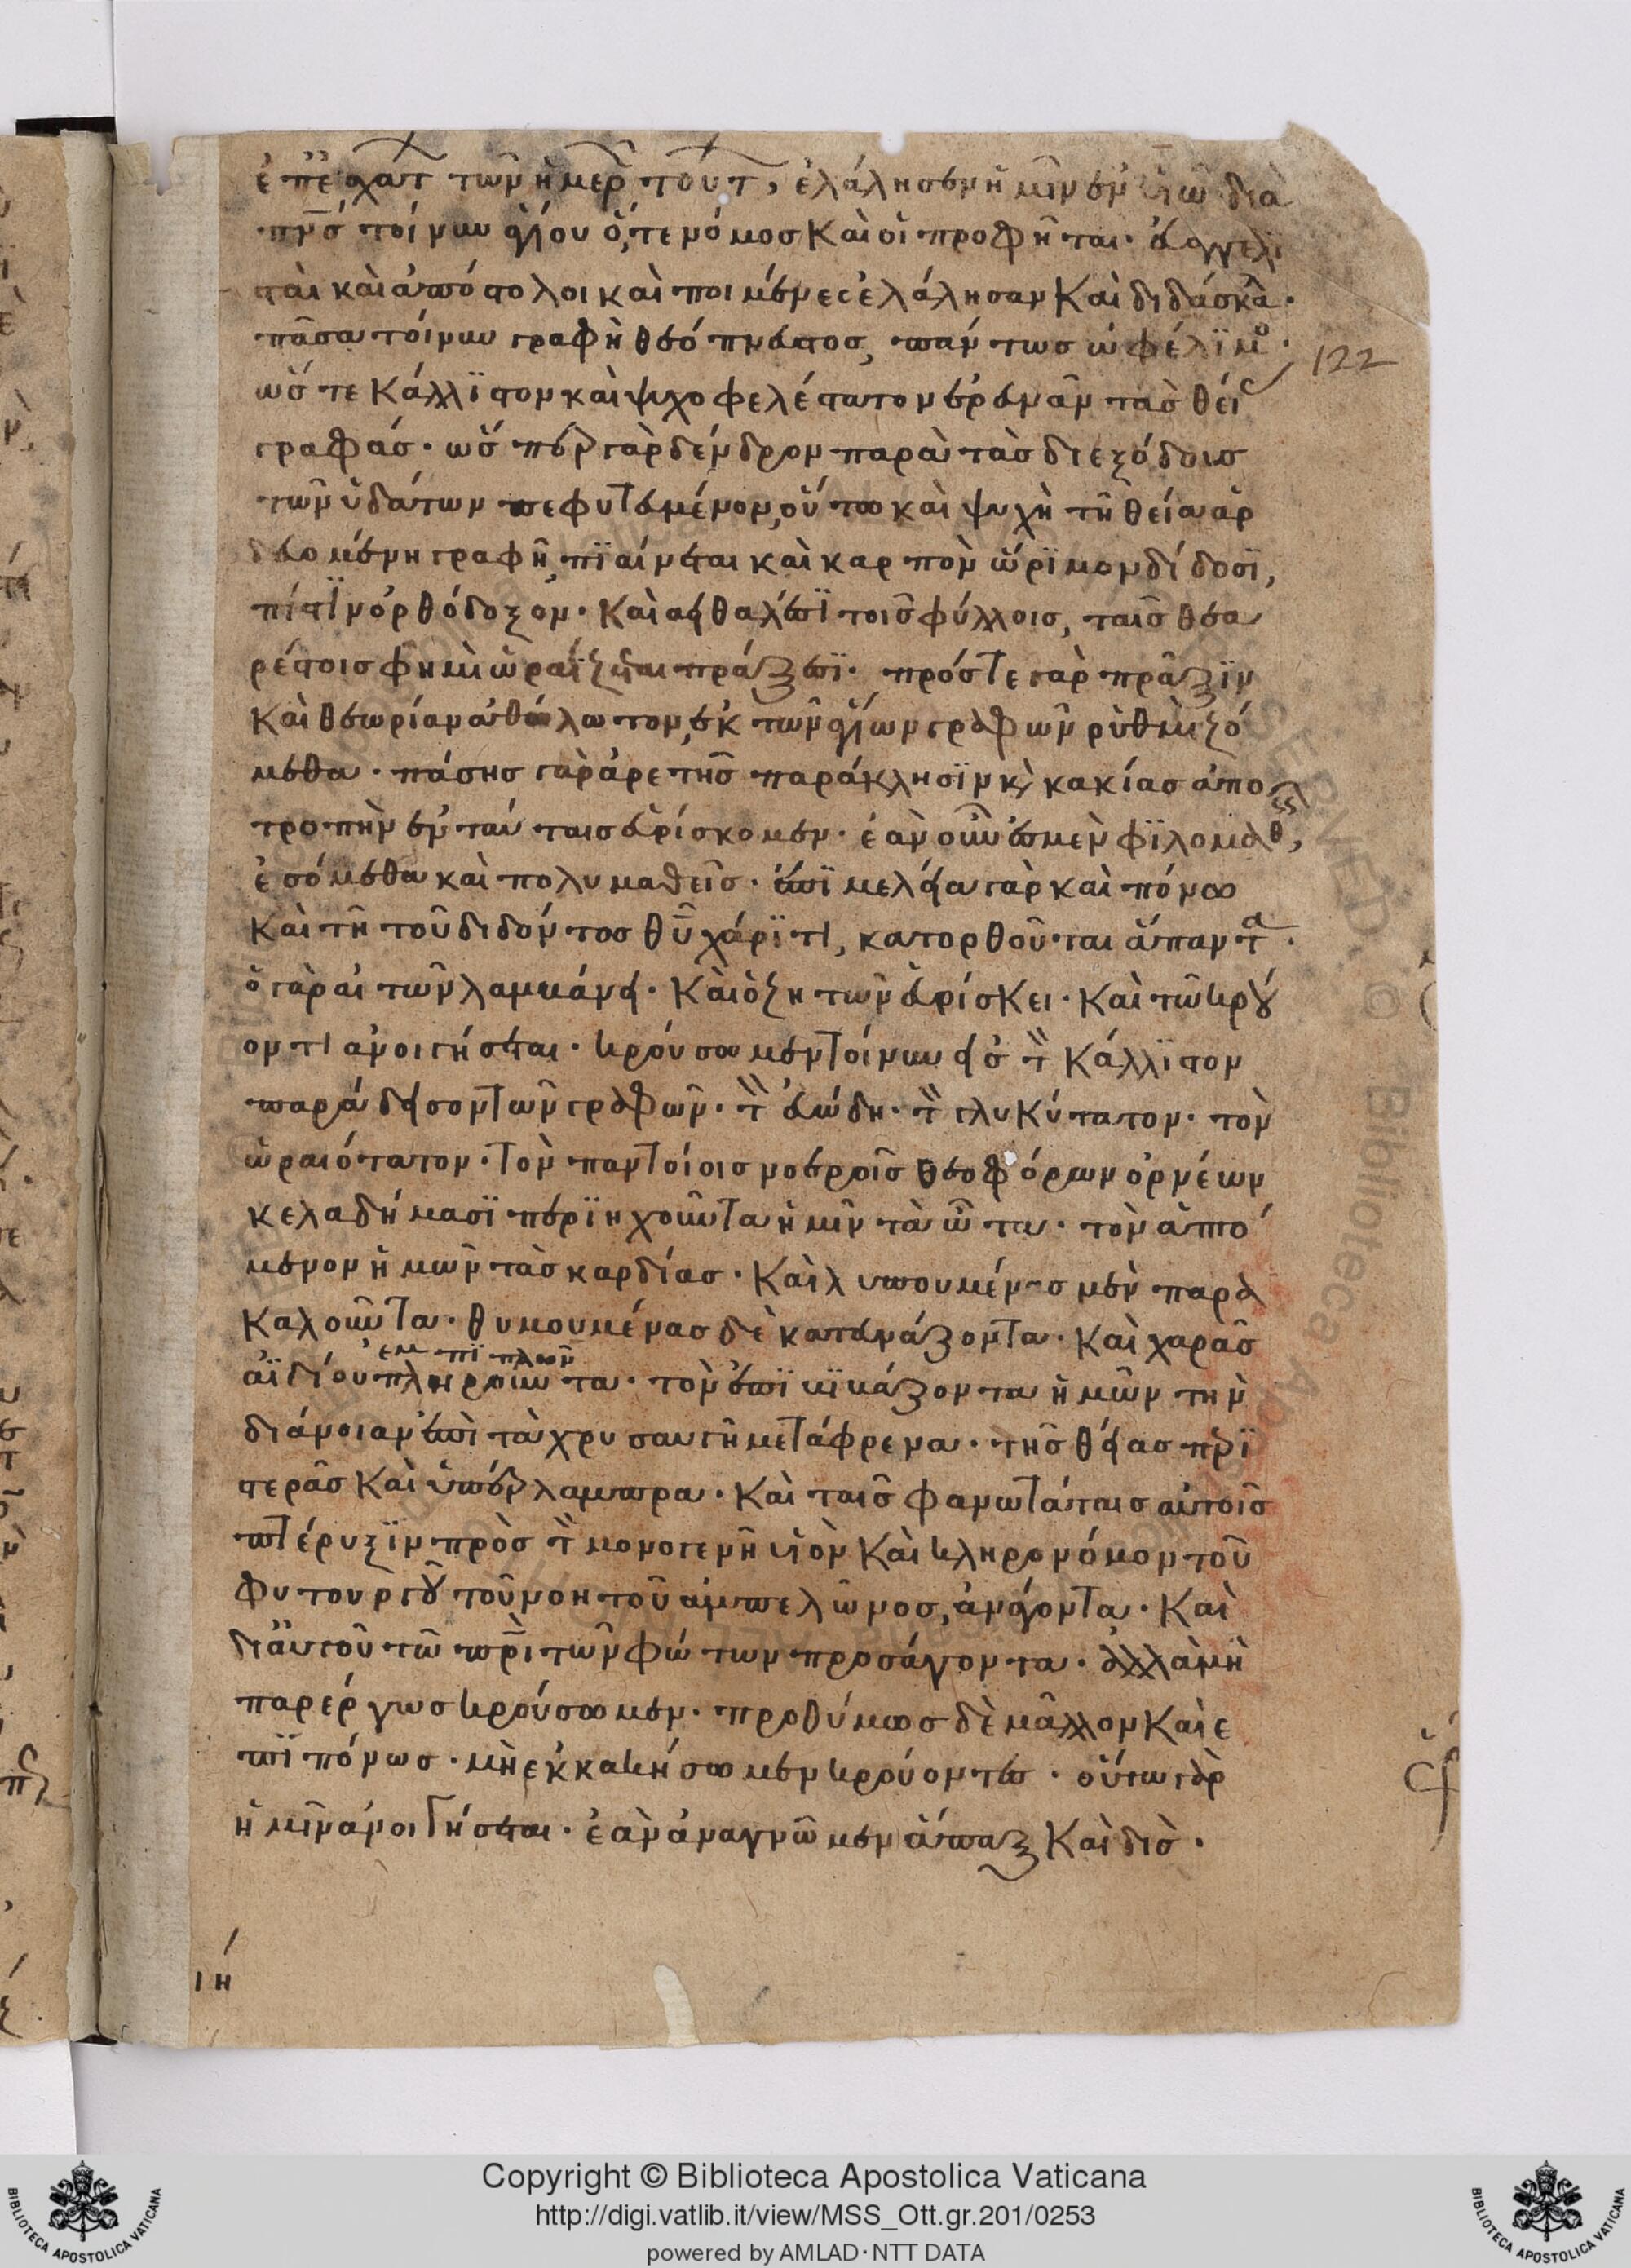 ἐπ ἐσχάτ τῶν ἡμερ τούτ, ἐλάλησεν ἡμῖν ἐν υἱῶ· διὰ
πνσ τοίνυν ἁγίου ὅ,τε νόμοσ καὶ οἱ προφῆται· εὐαγγελι
σταὶ καὶ ἀπόστολοι καὶ ποιμένες ἐλάλησαν καὶ διδάσκα·
πᾶσα τοίνυν γραφὴ θεόπνευστοσ, πάντωσ ὠφέλϊμο·
122
ὥστε κάλλϊστον καὶ ψυχοφελέστατον ἐρευνᾶν τὰσ θεί
γραφάσ· ὥσπερ γὰρ δένδρον παρὰ τὰσ διεξόδουσ
τῶν ὑδάτων πεφυτευμένον, οὕτω καὶ ψυχὴ τῆ θεία ἀρ
δευομένη γραφῆ, πϊαίνεται καὶ καρπὸν ὥρϊμον δίδοσϊ,
πίστϊν ὀρθόδοξον· καὶ ἀειθαλέσϊ τοῖσ φύλλοισ, ταῖσ θεα
ρέστοισ φημὶ ὡραΐζεται πράξεσϊ· πρόστε γὰρ πρᾶξϊν
καὶ θεωρίαν ἀθόλωτον, ἐκ τῶν ἁγίων γραφῶν ῥυθμιζό
μεθα· πάσησ γὰρ ἀρετῆσ παράκλησϊν κ κακίασ ἀπο
τροπὴν ἐν ταύταισ εὑρίσκομεν· ἐὰν οὖν ὦμεν φϊλομαθεῖς,
ἐσόμεθα καὶ πολυμαθεῖσ· ἐπϊμελεία γὰρ καὶ πόνω
καὶ τῆ τοῦ διδόντοσ θῦ χάρϊτι, κατορθοῦται ἅπαντα·
ὁ γὰρ αἰτῶν λαμβάνει· καὶ ὁ ζητῶν εὑρίσκει· καὶ τῶ κρού
οντι ἀνοιγήσεται· κρούσωμεν τοίνυν εἰσ τ κάλλϊστον
παράδεισον τῶν γραφῶν· τ εὐώδη· τ γλυκύτατον· τὸν
ὡραιότατον· τὸν παντοίοισ νοεροῖσ θεοφόρων ὀρνέων
κελαδήμασϊ περϊηχοῦντα ἡμῖν τὰ ὦτα· τὸν ἁπτό
μενον ἡμῶν τὰσ καρδίασ· καὶ λυπουμένασ μὲν παρα
καλοῦντα· θυμουμένασ δὲ κατευνάζοντα· καὶ χαρᾶσ
ἐμπϊπλῶν
ἀϊδίου πληροῦντα· τὸν ἐπϊβϊβάζοντα ἡμῶν τὴν
διάνοιαν ἐπὶ τὰ χρυσαυγῆ μετάφρενα· τῆσ θείασ πρϊ
στερᾶσ καὶ ὑπέρλαμπρα· καὶ ταῖσ φανωτάταισ αὐτοῖσ
πτέρυξϊν πρὸσ τ μονογενῆ υἱὸν καὶ κληρονόμον τοῦ
φυτουργοῦ τοῦ νοητοῦ ἀμπελῶνοσ, ἀνάγοντα· καὶ
δι αὐτοῦ τῶ πρϊ τῶν φώτων προσάγοντα· ἀλλὰ μὴ
παρέργωσ κρούσωμεν· προθύμωσ δὲ μᾶλλον καὶ ἐ
πϊπόνωσ· μὴ ἐκκακήσωμεν κρούοντεσ· οὕτω γὰρ
ἡμῖν ἀνοιγήσεται· ἐὰν ἀναγνῶμεν ἅπαξ καὶ δὶσ·
ιη
Copyright © Biblioteca Apostolica Vaticana
http://digi.vatlib.it/view/MSS_Ott.gr.201/0253
powered by AMLAD·NTT DATA
BIBLIOTECA APOSTOLICA VATICANA
BIBLIOTECA APOSTOLICA VATICANA